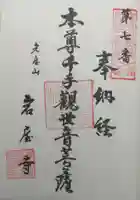 第七番
奉納経
本尊千手観世音菩薩
岩屋寺